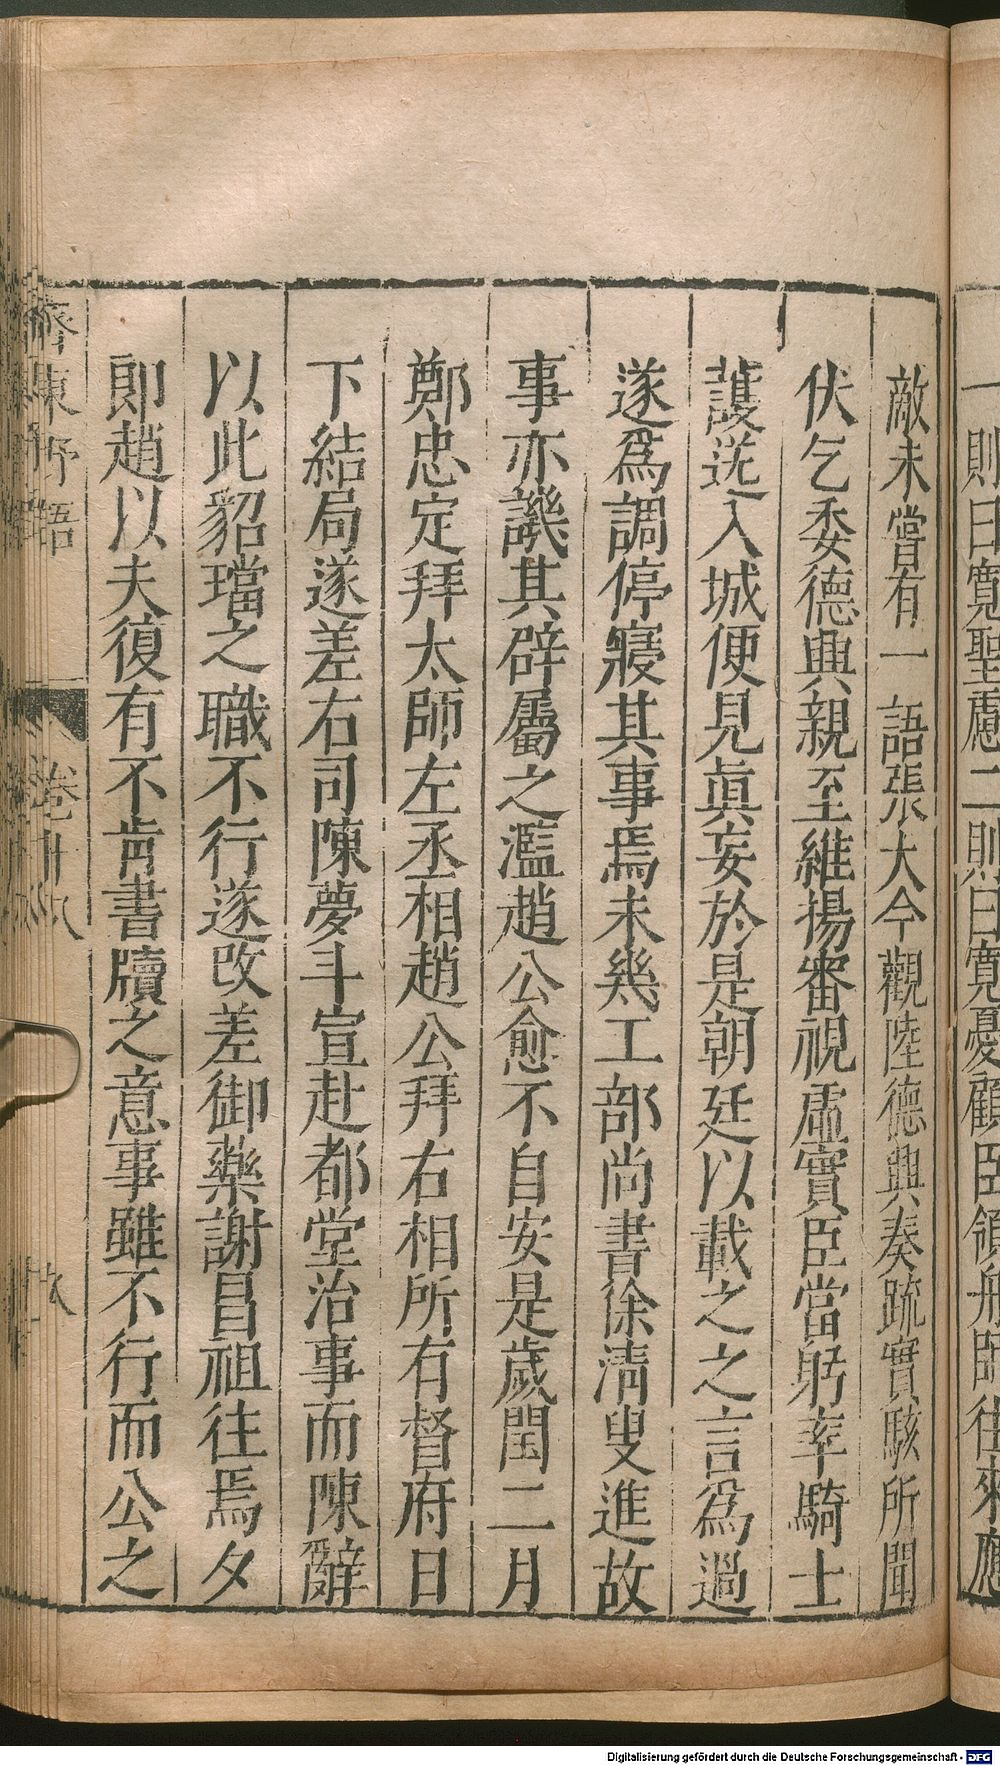 一則曰寬聖慮二則曰寬憂顧臣領舟師往來應
敵未嘗有一語張大今觀陸德興奏疏實駭所聞
伏乞委德興親至維揚審視虛實臣當躬率騎士
護送入城便見眞妄於是朝廷以載之之言爲過
遂爲調停寢其事焉未幾工部尚書徐淸叟進故
事亦譏其辟屬之濫趙公愈不自安是歲閏二月
鄭忠定拜太師左丞相趙公拜右相所有督府日
下結局遂差右司陳夢斗宣赴都堂治事而陳辭
以此貂璫之職不行遂改差御藥謝昌祖往焉夕
即趙以夫復有不肯書牘之意事雖不行而公之
齊東野語
卷十八
Digitalisierung gefördert durch die Deutsche Forschungsgemeinschaft - DFG